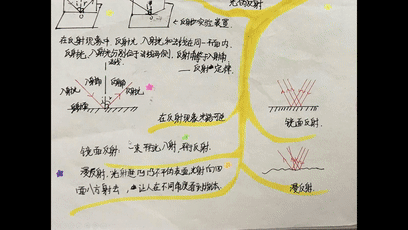 光的反射
←反射实验装置
在反射现象中，反射光、入射光和法线在同一平面内。
反射光、入射光分别位于法线两侧，反射角等于入射角
—— 反射定律
法线
入射光
入射角
反射角
反射光
在反射现象光路可逆
镜面反射
镜面反射：一束平行光入射，平行反射。
漫反射：光射照凹凸不平的表面，光射向四
面八方射去，让人在不同角度看到物体
漫反射